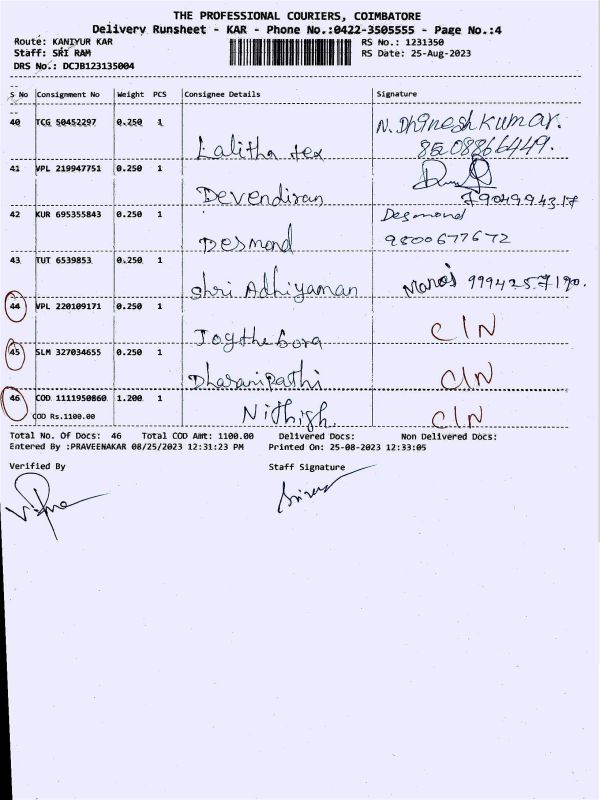 THE PROFESSIONAL COURIERS, COIMBATORE
Delivery Runsheet - KAR - Phone No.:0422-3505555 - Page No.:4
Route: KANIYUR KAR RS No.: 1231350
Staff: SRI RAM RS Date: 25-Aug-2023
DRS No.: DCJB123135004
S No Consignment No Weight PCS Consignee Details Signature
40 TCG 50452297 0.250 1 Lalitha tex N. Dhineshkumar. 8508866449.
41 VPL 219947751 0.250 1 Devendiran 7904994317
42 KUR 695355843 0.250 1 Desmond Desmond 9800677672
43 TUT 6539853 0.250 1 Shri Adhiyaman Manoj 9994257190.
44 VPL 220109171 0.250 1 CIN
45 SLM 327034655 0.250 1 Dharanipathi CIN
46 COD 1111950860 1.200 1 Nithish CIN
COD Rs.1100.00
Total No. Of Docs: 46 Total COD Amt: 1100.00 Delivered Docs: Non Delivered Docs:
Entered By :PRAVEENAKAR 08/25/2023 12:31:23 PM Printed On: 25-08-2023 12:33:05
Verified By Staff Signature